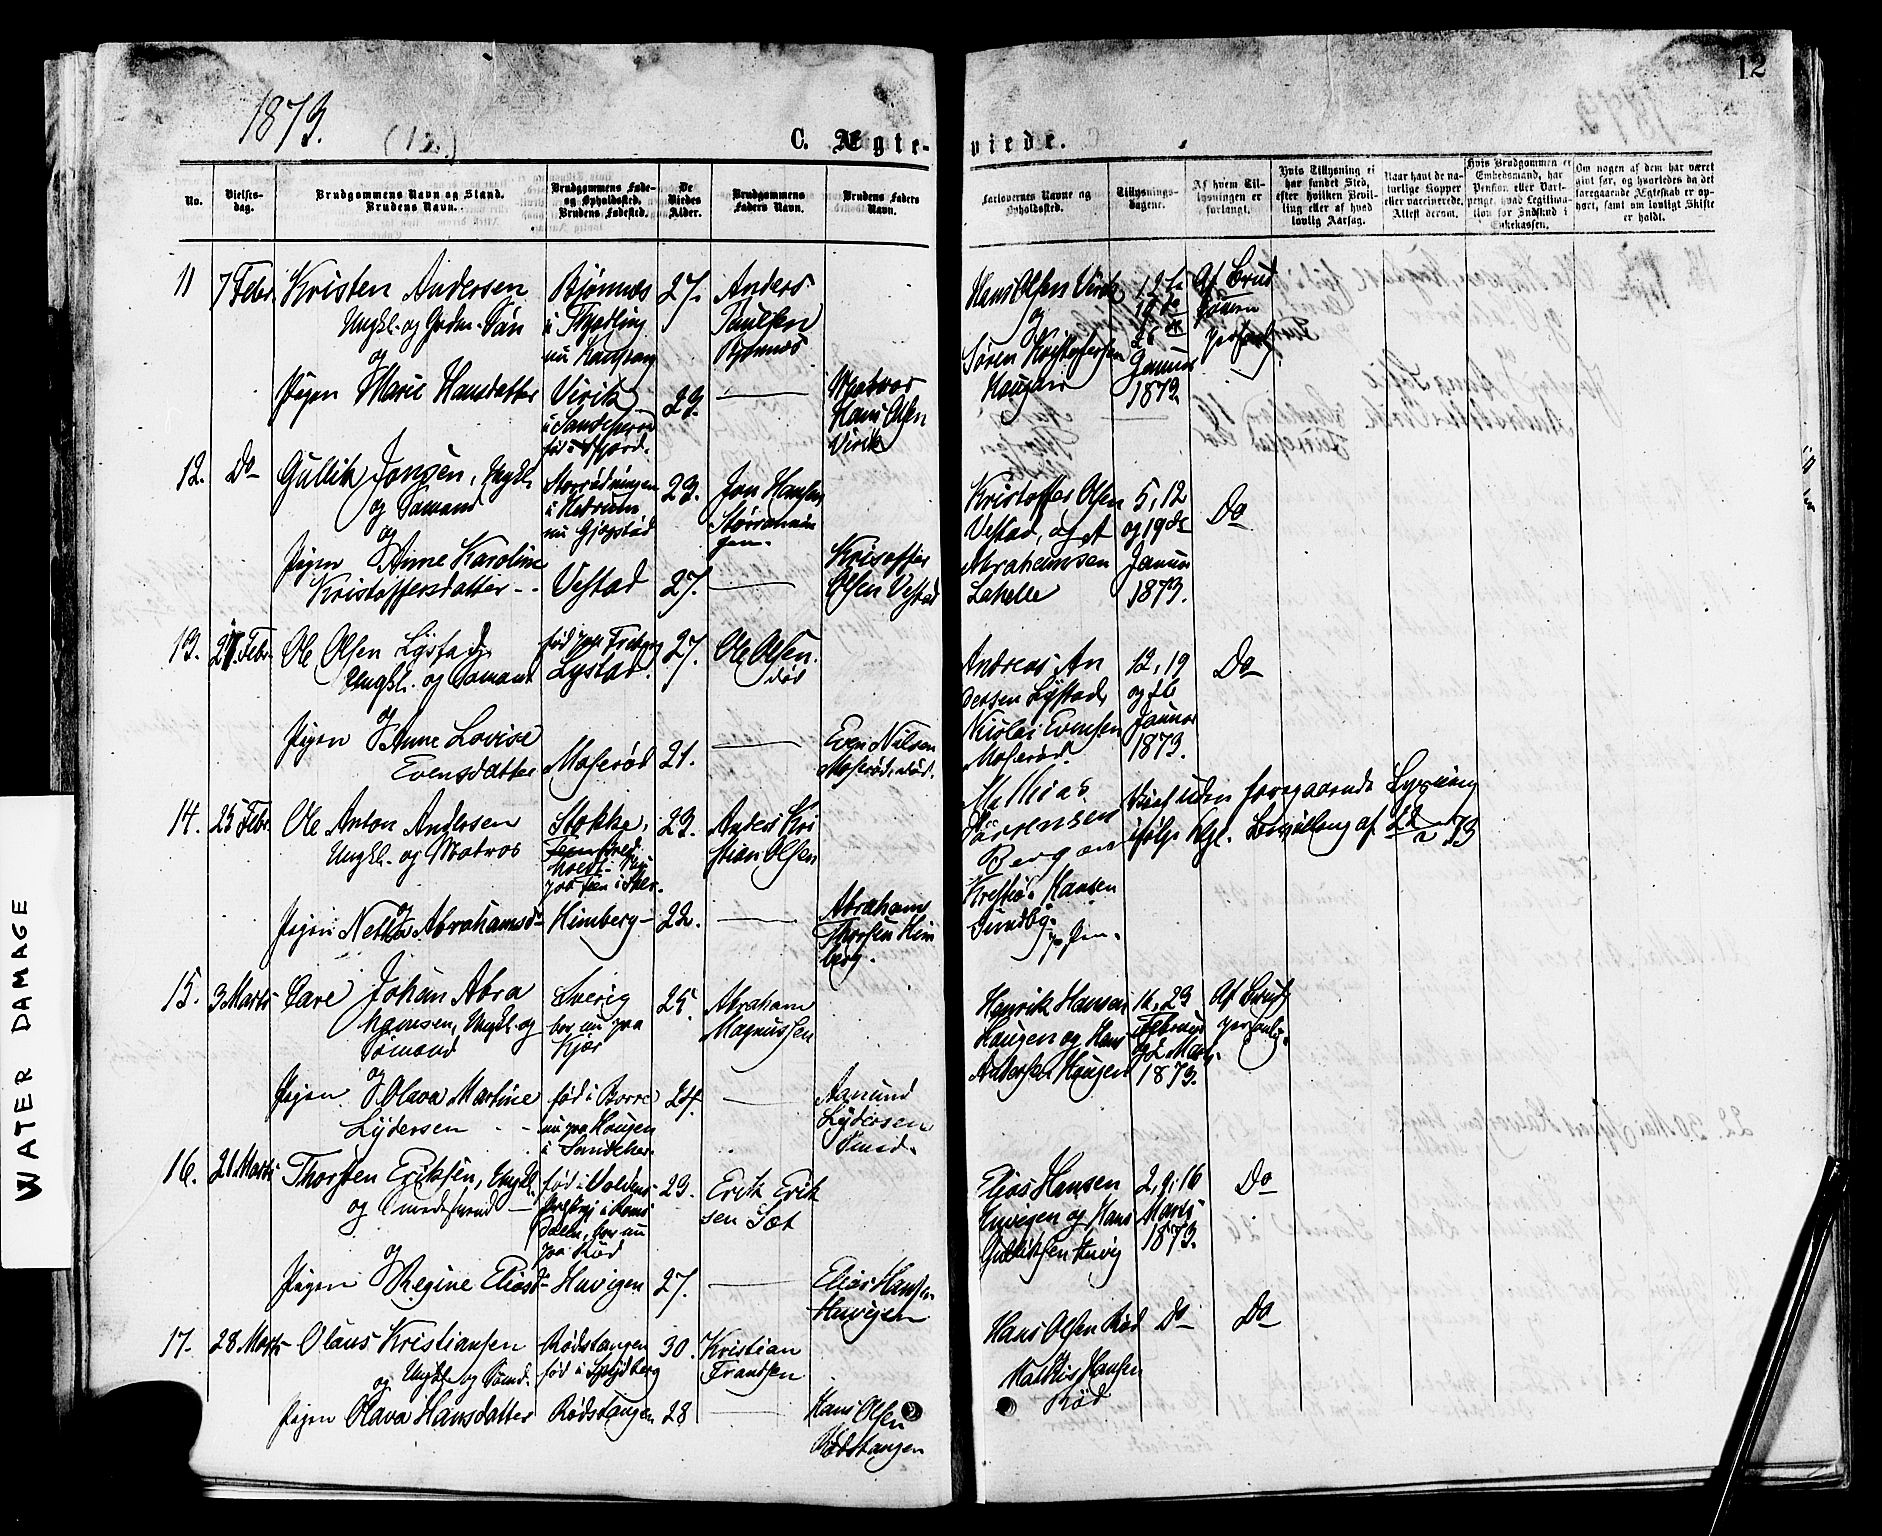 12
1873.
(12.)
C. Ægte-
viede.
No.
Vielses-
dag.
Brudgommens Navn og Stand.
Brudens Navn.
Brudgommens Føde-
og Opholdssted.
Brudens Fødested.
De
Viedes
Alder.
Brudgommens
Faders Navn.
Brudens Faders
Navn.
Forlovernes Navne og
Opholdssted.
Tillysnings-
dagene.
Af hvem Til-
lysningen er
forlangt.
Hvis Tillysning ei
har fundet Sted,
efter hvilken Bevil-
ling eller af hvad
lovlig Aarsag.
Naar havt de na-
turlige Kopper
eller vaccinerede.
Attest derom.
Hvis Brudgommen er
Embedsmand, har
Pension eller Vart-
penge, hvad Legitima-
tion for Indskud i
Enkekassen.
Om nogen af dem har været
gift før, og hvorledes da det
foregaaende Ægteskab er op-
hørt, samt om lovligt Skifte
er holdt.
11 7 Febr Kristen Andersen
Ungkl. og Grdm. Søn
og
Bjønnes
i Thjødling
27.
Anders
Paulsen
Bjønnes
Hans Olsen Virik
og
Søren Kristofersen
Haugen
12te
19de
26de
Januar
1873
Af Brud
gommen
Pigen Marie Hansdatter
Virik
i Sandeherre
23.
Matros
Hans Olsen
Virik
12. Do Gullik Jonsen, Ungkl.
og Sømand
og
i Hedrum
23.
Jon Hansen
Kristoffer Olsen
Vestad, og A
Abrahamsen
5, 12
og 19de
Januar
1873.
Do
Pigen Anne Karoline
Kristoffersdatter
Vestad
27.
Kristoffer
Olsen Vestad
13. Febr. Ole Olsen Lystad,
Ungkl. og Sømand
og
Lystad.
27.
Ole Olsen.
død
Andreas An
dersen Lystad,
Nicolai Evensen
Moserød.
12, 19
og 26
Januar
1873.
Do
Pigen Anne Lovise
Evensdatter
Moserød
21.
Even Nilsen
Moserød, død.
14. 25 Febr. Ole Anton Andersen
Ungkl. og Matros
og
Stokke,
23.
Anders Kri
stian Olsen
Mathias
Sørensen
Bergan
Kristian Hansen
Sundby
Viet uden foregaaende Lysning
ifølge Kgl. Bevilling af 22/2 73
Pigen Netta Abrahamsd.
Himberg
22.
Abraham
Thorsen Him
berg.
15. 3 Marts Johan Abra
hamsen, Ungkl. og
Sømand
og
Sverig
bor nu paa
Kjær
25.
Abraham
Magnussen
Henrik Hansen
Haugen og Hans
Andersen Haugen
16, 23
Februar
og 2 Marts
1873.
Af Brudg
personlig.
Pigen Olava Martine
Lydersen
født i Borre
nu paa Haugen
i Sandeher.
24.
Aamund
Lydersen
Smed.
16. 21 Marts Thorsten Eriksen, Ungkl.
og Smedesvend
og
bor nu
paa Rød
23.
Erik Erik
sen Sæt
Elias Hansen
Huvigen og Hans
Gulliksen Huvig
2, 9, 16
Marts
1873.
Do
Pigen Regine Eliasd.
Huvigen
27.
Elias Hansen
Huvigen
17. 28 Marts Olaus Kristiansen
Ungkl. og Sømd.
og
Rødstangen
født i Spydberg
30.
Kristian
Frandsen
Hans Olsen Rød
Mathis Hansen
Rød
Do
Do
Pigen Olava Hansdatter
Rødstangen
28
Hans Olsen
Rødstangen
WATER DAMAGE